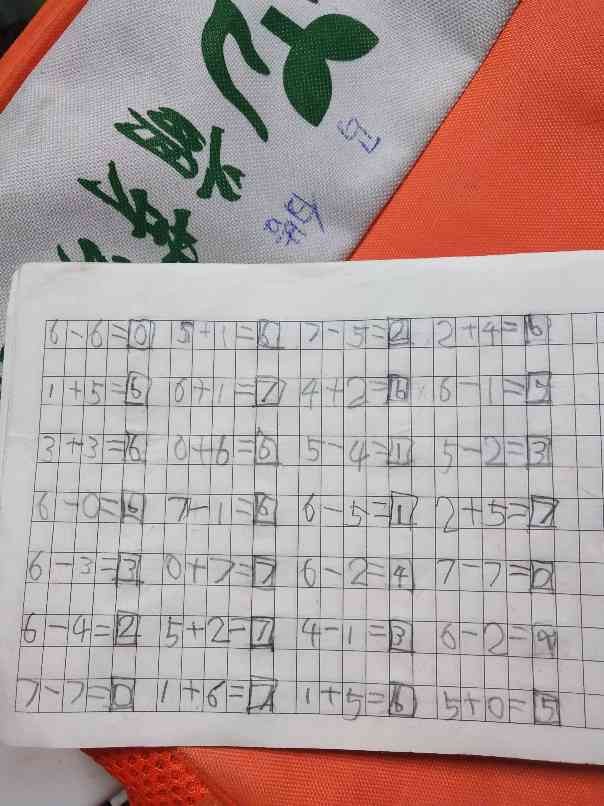 6-6=0 5+1=6 7-5=2 2+4=6
1+5=6 6+1=7 4+2=6 6-1=5
3+3=6 0+6=6 5-4=1 5-2=3
6-0=6 7-1=6 6-5=1 2+5=7
6-3=3 0+7=7 6-2=4 7-7=0
6-4=2 5+2=7 4-1=3 6-2=4
7-7=0 1+6=7 1+5=6 5+0=5